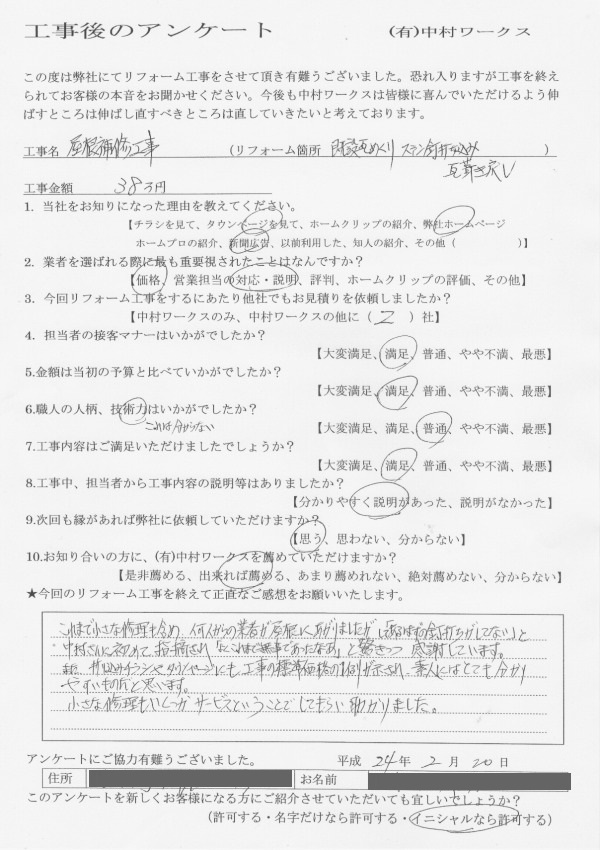 工事後のアンケート　(有)中村ワークス
この度は弊社にてリフォーム工事をさせて頂き有難うございました。恐れ入りますが工事を終え
られてお客様の本音をお聞かせください。今後も中村ワークスは皆様に喜んでいただけるよう伸
ばすところは伸ばし直すべきところは直していきたいと考えております。
工事名　屋根補修工事　(リフォーム箇所　瓦めくり ステン釘打込み　)
瓦葺き戻し
工事金額　38万円
1. 当社をお知りになった理由を教えてください。
【チラシを見て、タウンページを見て、ホームクリップの紹介、弊社ホームページ
ホームプロの紹介、新聞広告、以前利用した、知人の紹介、その他（　）】
2. 業者を選ばれる際に最も重要視されたことはなんですか？
【価格、営業担当の対応・説明、評判、ホームクリップの評価、その他】
3. 今回リフォーム工事をするにあたり他社でもお見積りを依頼しましたか？
【中村ワークスのみ、中村ワークスの他に（ 2 ）社】
4. 担当者の接客マナーはいかがでしたか？
【大変満足、満足、普通、やや不満、最悪】
5.金額は当初の予算と比べていかがでしたか？
【大変満足、満足、普通、やや不満、最悪】
6.職人の人柄、技術力はいかがでしたか？
これは分からない
【大変満足、満足、普通、やや不満、最悪】
7.工事内容はご満足いただけましたでしょうか？
【大変満足、満足、普通、やや不満、最悪】
8.工事中、担当者から工事内容の説明等はありましたか？
【分かりやすく説明があった、説明がなかった】
9.次回も縁があれば弊社に依頼していただけますか？
【思う、思わない、分からない】
10.お知り合いの方に、(有)中村ワークスを薦めていただけますか？
【是非薦める、出来れば薦める、あまり薦めれない、絶対薦めない、分からない】
★今回のリフォーム工事を終えて正直なご感想をお願いいたします。
これまで小さな修理も含め、何人からの業者が屋根に上がりましたが「釘打ちがしてない」と
中村さんに初めて指摘され「よくこれまで無事であったなあ」と驚きつつ感謝しています。
また、折込みチラシやタウンページにも工事の標準価格の例が示され、素人にはとても分かり
やすいものだと思います。
小さな修理もいくつかサービスということでしてもらい助かりました。
アンケートにご協力有難うございました。　平成 24 年 2 月 20 日
住所　お名前
このアンケートを新しくお客様になる方にご紹介させていただいても宜しいでしょうか？
(許可する・名字だけなら許可する・イニシャルなら許可する)